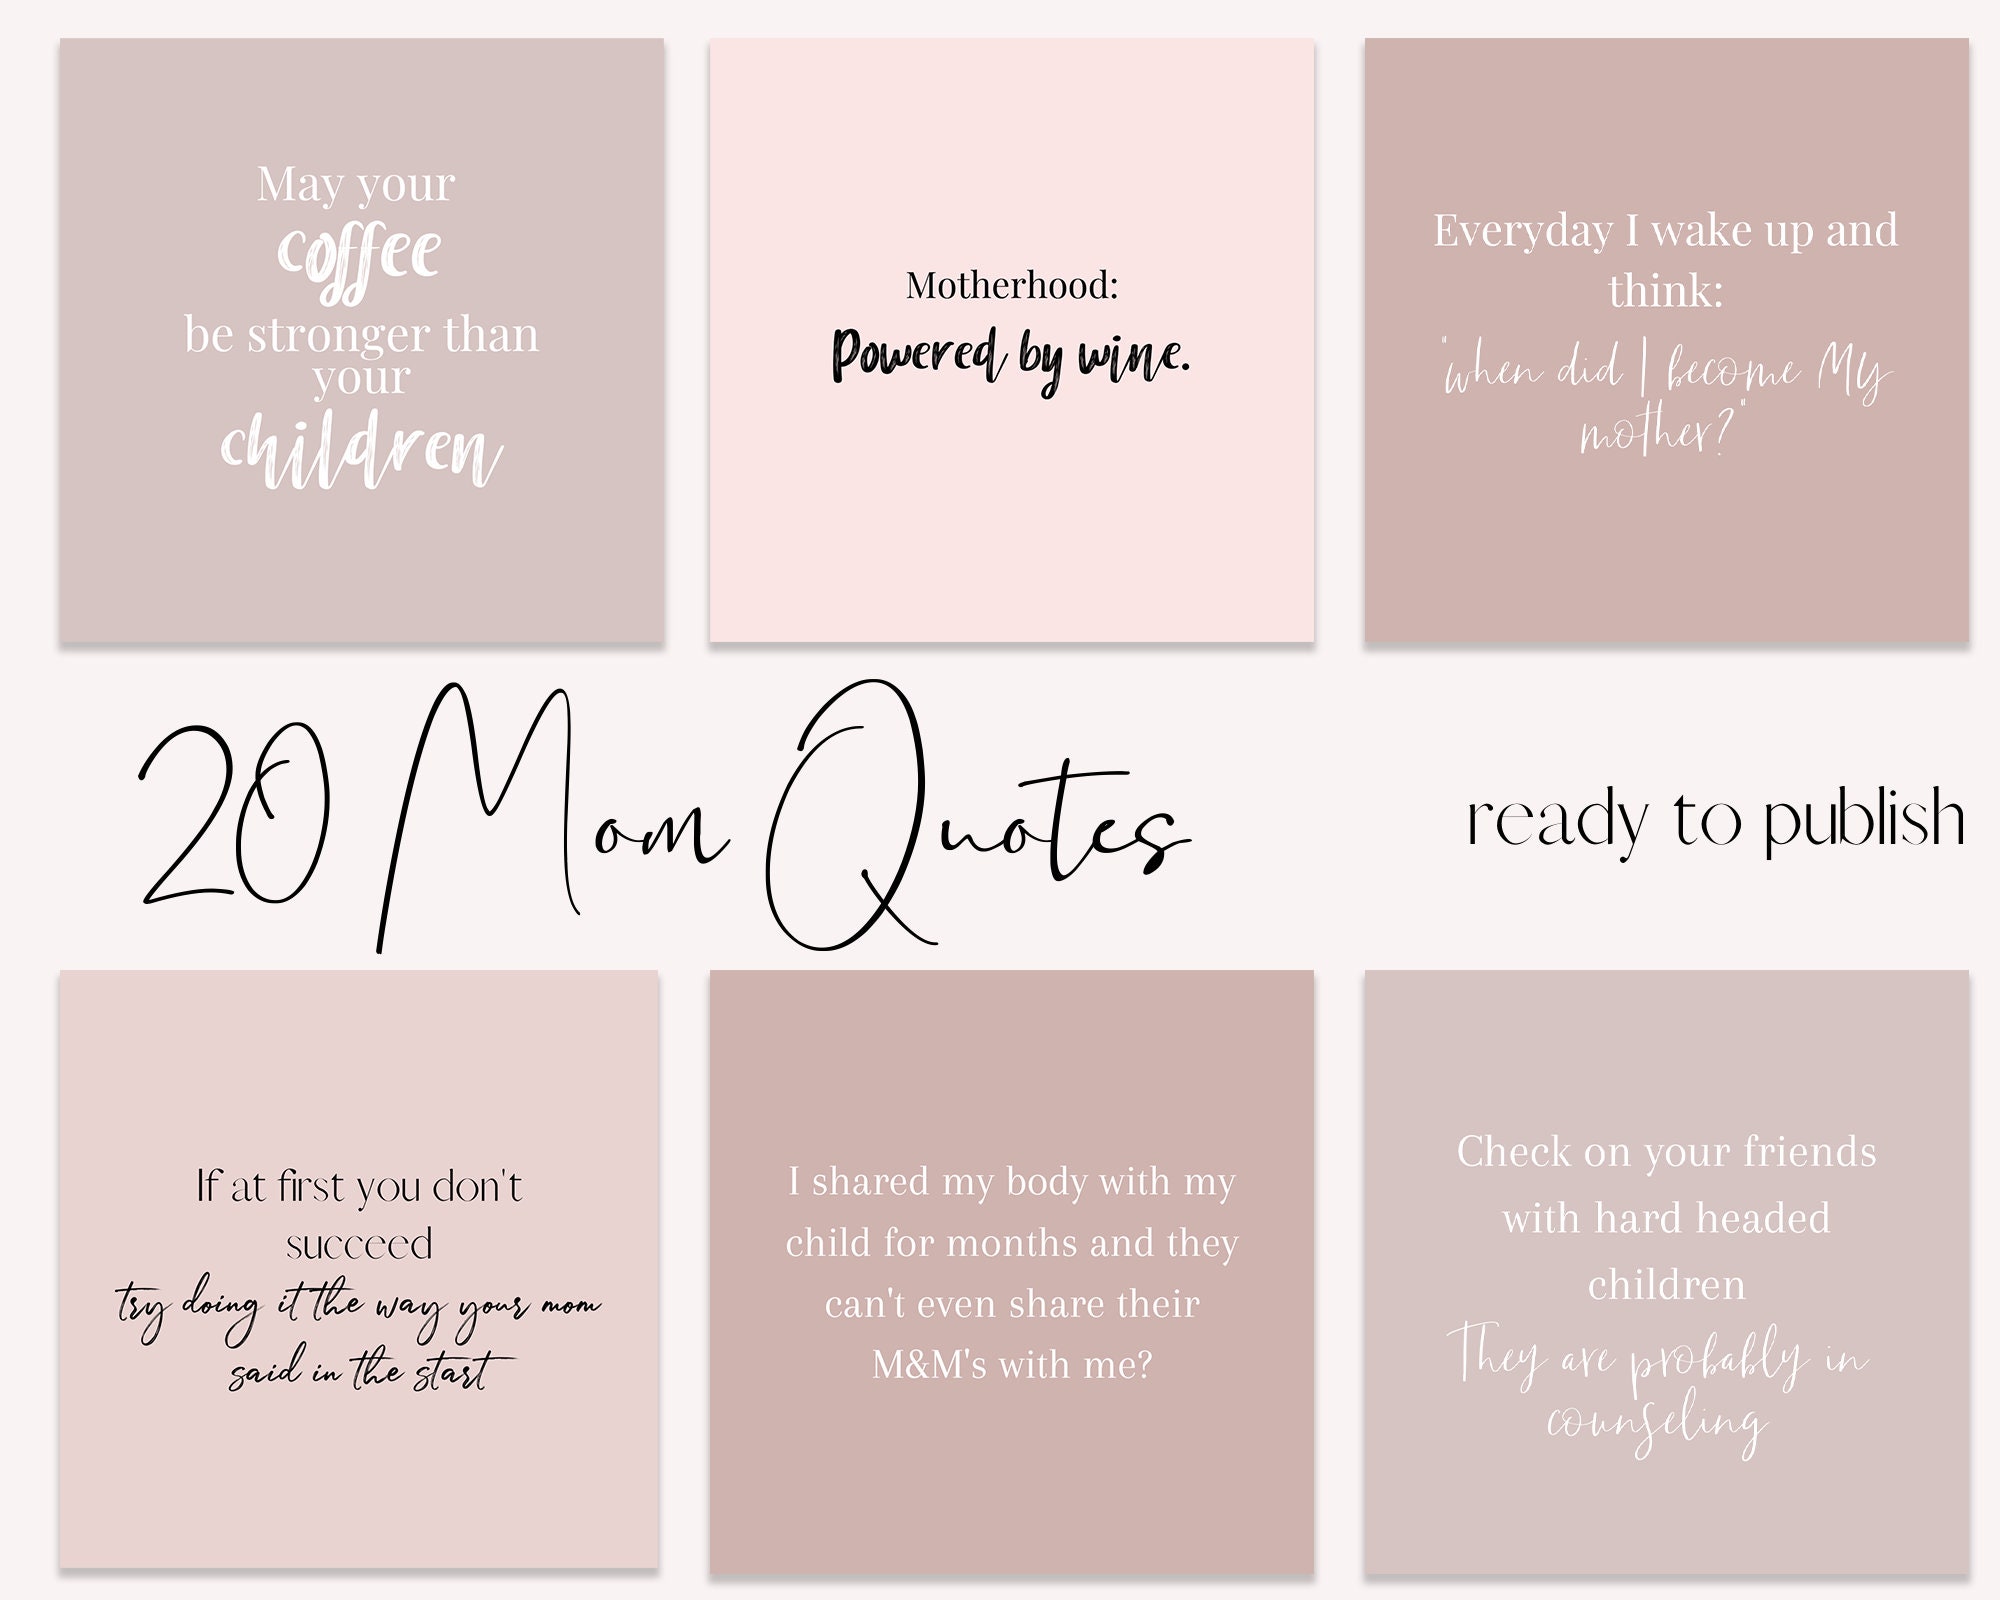 May your
coffee
be stronger than
your
children
Motherhood:
Powered by wine.
Everyday I wake up and
think:
"when did I become My
mother?"
20 Mom Quotes
ready to publish
If at first you don't
succeed
try doing it the way your mom
said in the start
I shared my body with my
child for months and they
can't even share their
M&M's with me?
Check on your friends
with hard headed
children
They are probably in
counseling